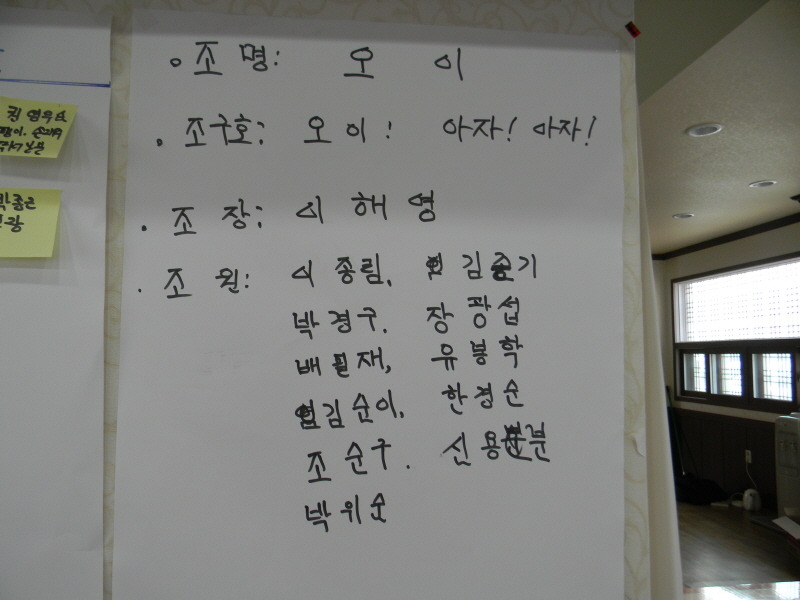 조 명: 오 이
조구호: 오 이! 아자! 아자!
조 장: 이 해 영
조 원: 이 종림, 김중기
박경구, 장광섭
배 재, 유봉학
김순이, 한경순
조순구. 신용분
박위순
박종근